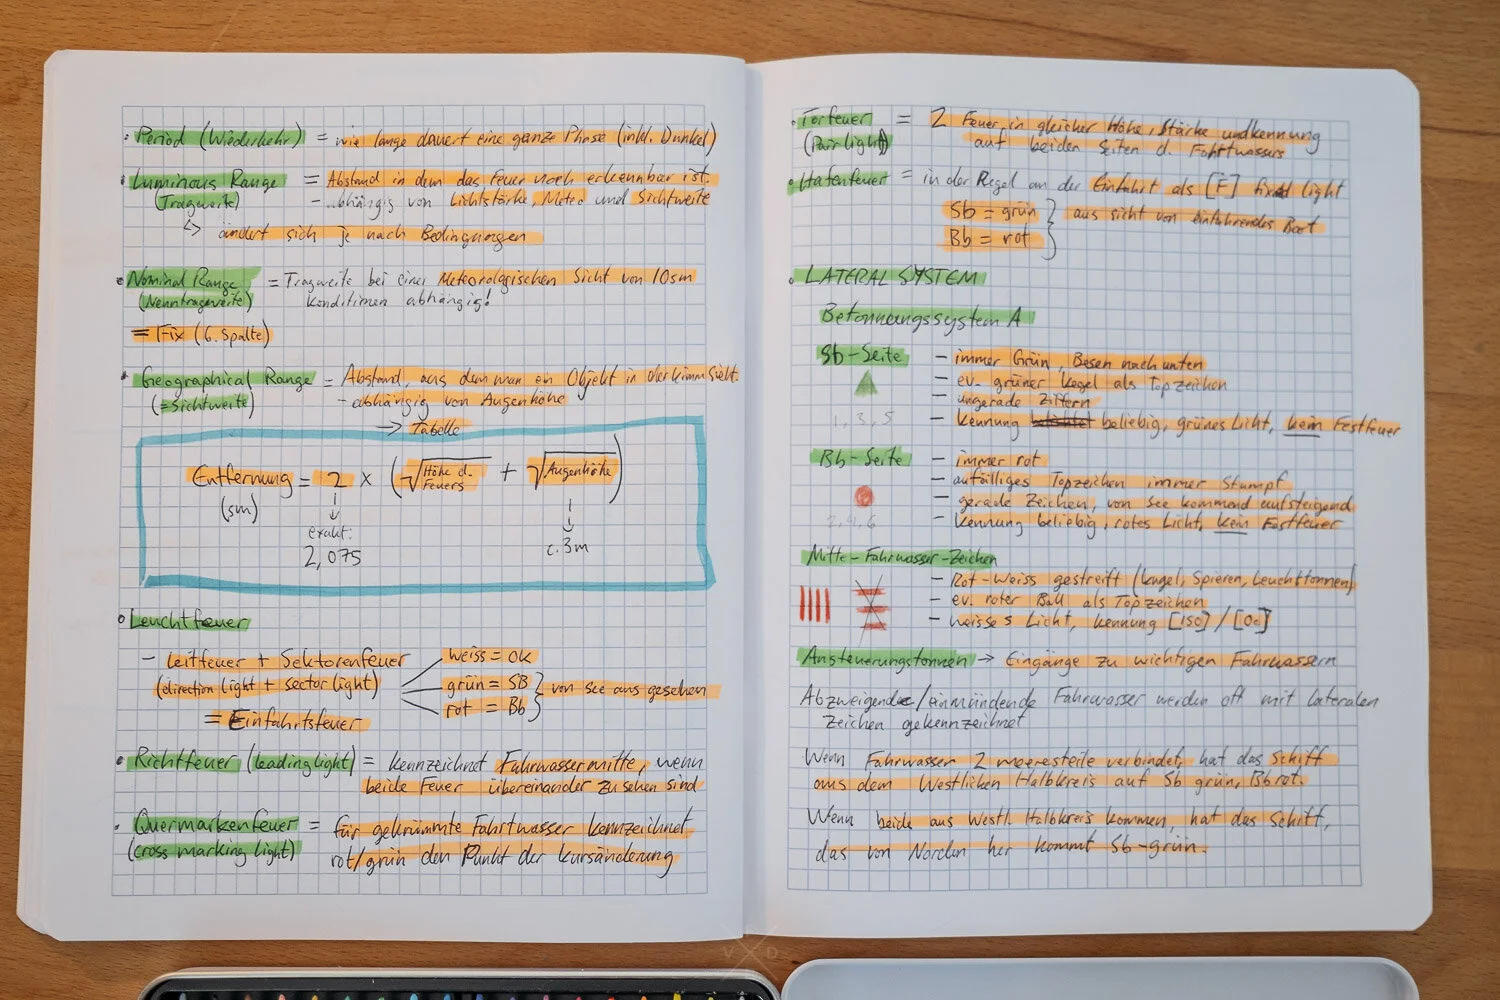 • Period (Wiederkehr) = wie lange dauert eine ganze Phase (inkl. Dunkel)
• Luminous Range = Abstand in dem das Feuer noch erkennbar ist.
(Tragweite) - abhängig von Lichtstärke, Meteo und Sichtweite
↳ ändert sich je nach Bedingungen
• Nominal Range = Tragweite bei einer Meteorologischen Sicht von 10sm
(Nenntragweite) Konditionen abhängig!
= Fix (6. Spalte)
• Geographical Range = Abstand, aus dem man ein Objekt in der Kimm sieht.
(=Sichtweite) - abhängig von Augenhöhe
→ Tabelle
Entfernung = 2 × (√Höhe d. Feuers + √Augenhöhe)
(sm)
exakt:
2,075
c. 3m
• Leuchtfeuer
- Leitfeuer + Sektorenfeuer
(direction light + sector light)
= Einfahrtsfeuer
weiss = OK
grün = SB
rot = Bb
} von See aus gesehen
• Richtfeuer (leading light) = kennzeichnet Fahrwassermitte, wenn
beide Feuer übereinander zu sehen sind
• Quermarkenfeuer = für gekrümmte Fahrtwasser kennzeichnet
(cross marking light) rot/grün den Punkt der Kursänderung
• Torfeuer = 2 Feuer in gleicher Höhe, Stärke und kennung
(Pair light) auf beiden Seiten d. Fahrtwassers
• Hafenfeuer = in der Regel an der Einfahrt als [F] fixed light
Sb = grün
Bb = rot
} aus sicht von einfahrendes Boot
• LATERAL SYSTEM
Betonnungssystem A
Sb-Seite - immer Grün, Besen nach unten
- ev. grüner Kegel als Topzeichen
- ungerade Ziffern
1, 3, 5 - Kennung beliebig, grünes Licht, kein Festfeuer
Bb-Seite - immer rot
- auffälliges Topzeichen immer stumpf
- gerade Zeichen, von see kommend aufsteigend
2, 4, 6 - Kennung beliebig, rotes Licht, kein Festfeuer
Mitte-Fahrwasser-Zeichen
- Rot-Weiss gestreift (Kugel, Spieren, Leuchttonnen)
- ev. roter Ball als Topzeichen
- weisses Licht, kennung [ISO] / [Oc]
Ansteuerungstonnen → Eingänge zu wichtigen Fahrwassern
Abzweigende/einmündende Fahrwasser werden oft mit lateralen
Zeichen gekennzeichnet
Wenn Fahrwasser 2 meeresteile verbindet, hat das Schiff
aus dem Westlichen Halbkreis auf Sb grün, Bb rot.
Wenn beide aus Westl. Halbkreis kommen, hat das Schiff,
das von Norden her kommt Sb-grün.